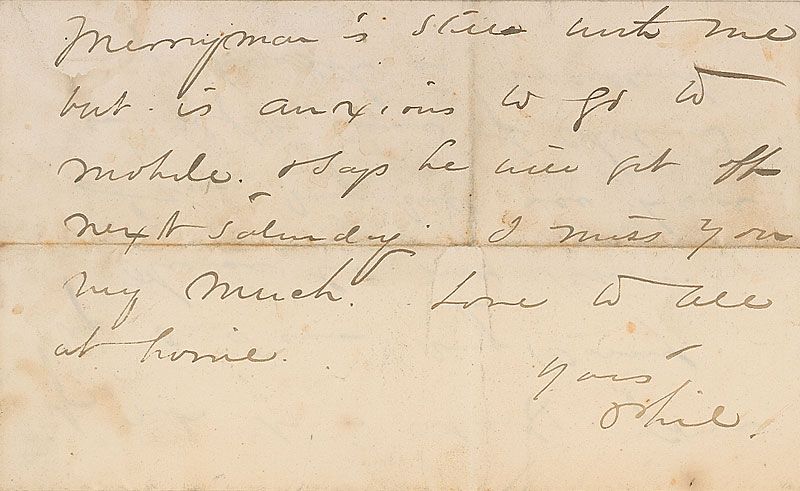 Merryman is still with me
but is anxious to go to
Mobile. & says he will get off
next Saturday. I miss you
very much. Love to all
at home.
yours
Phil.